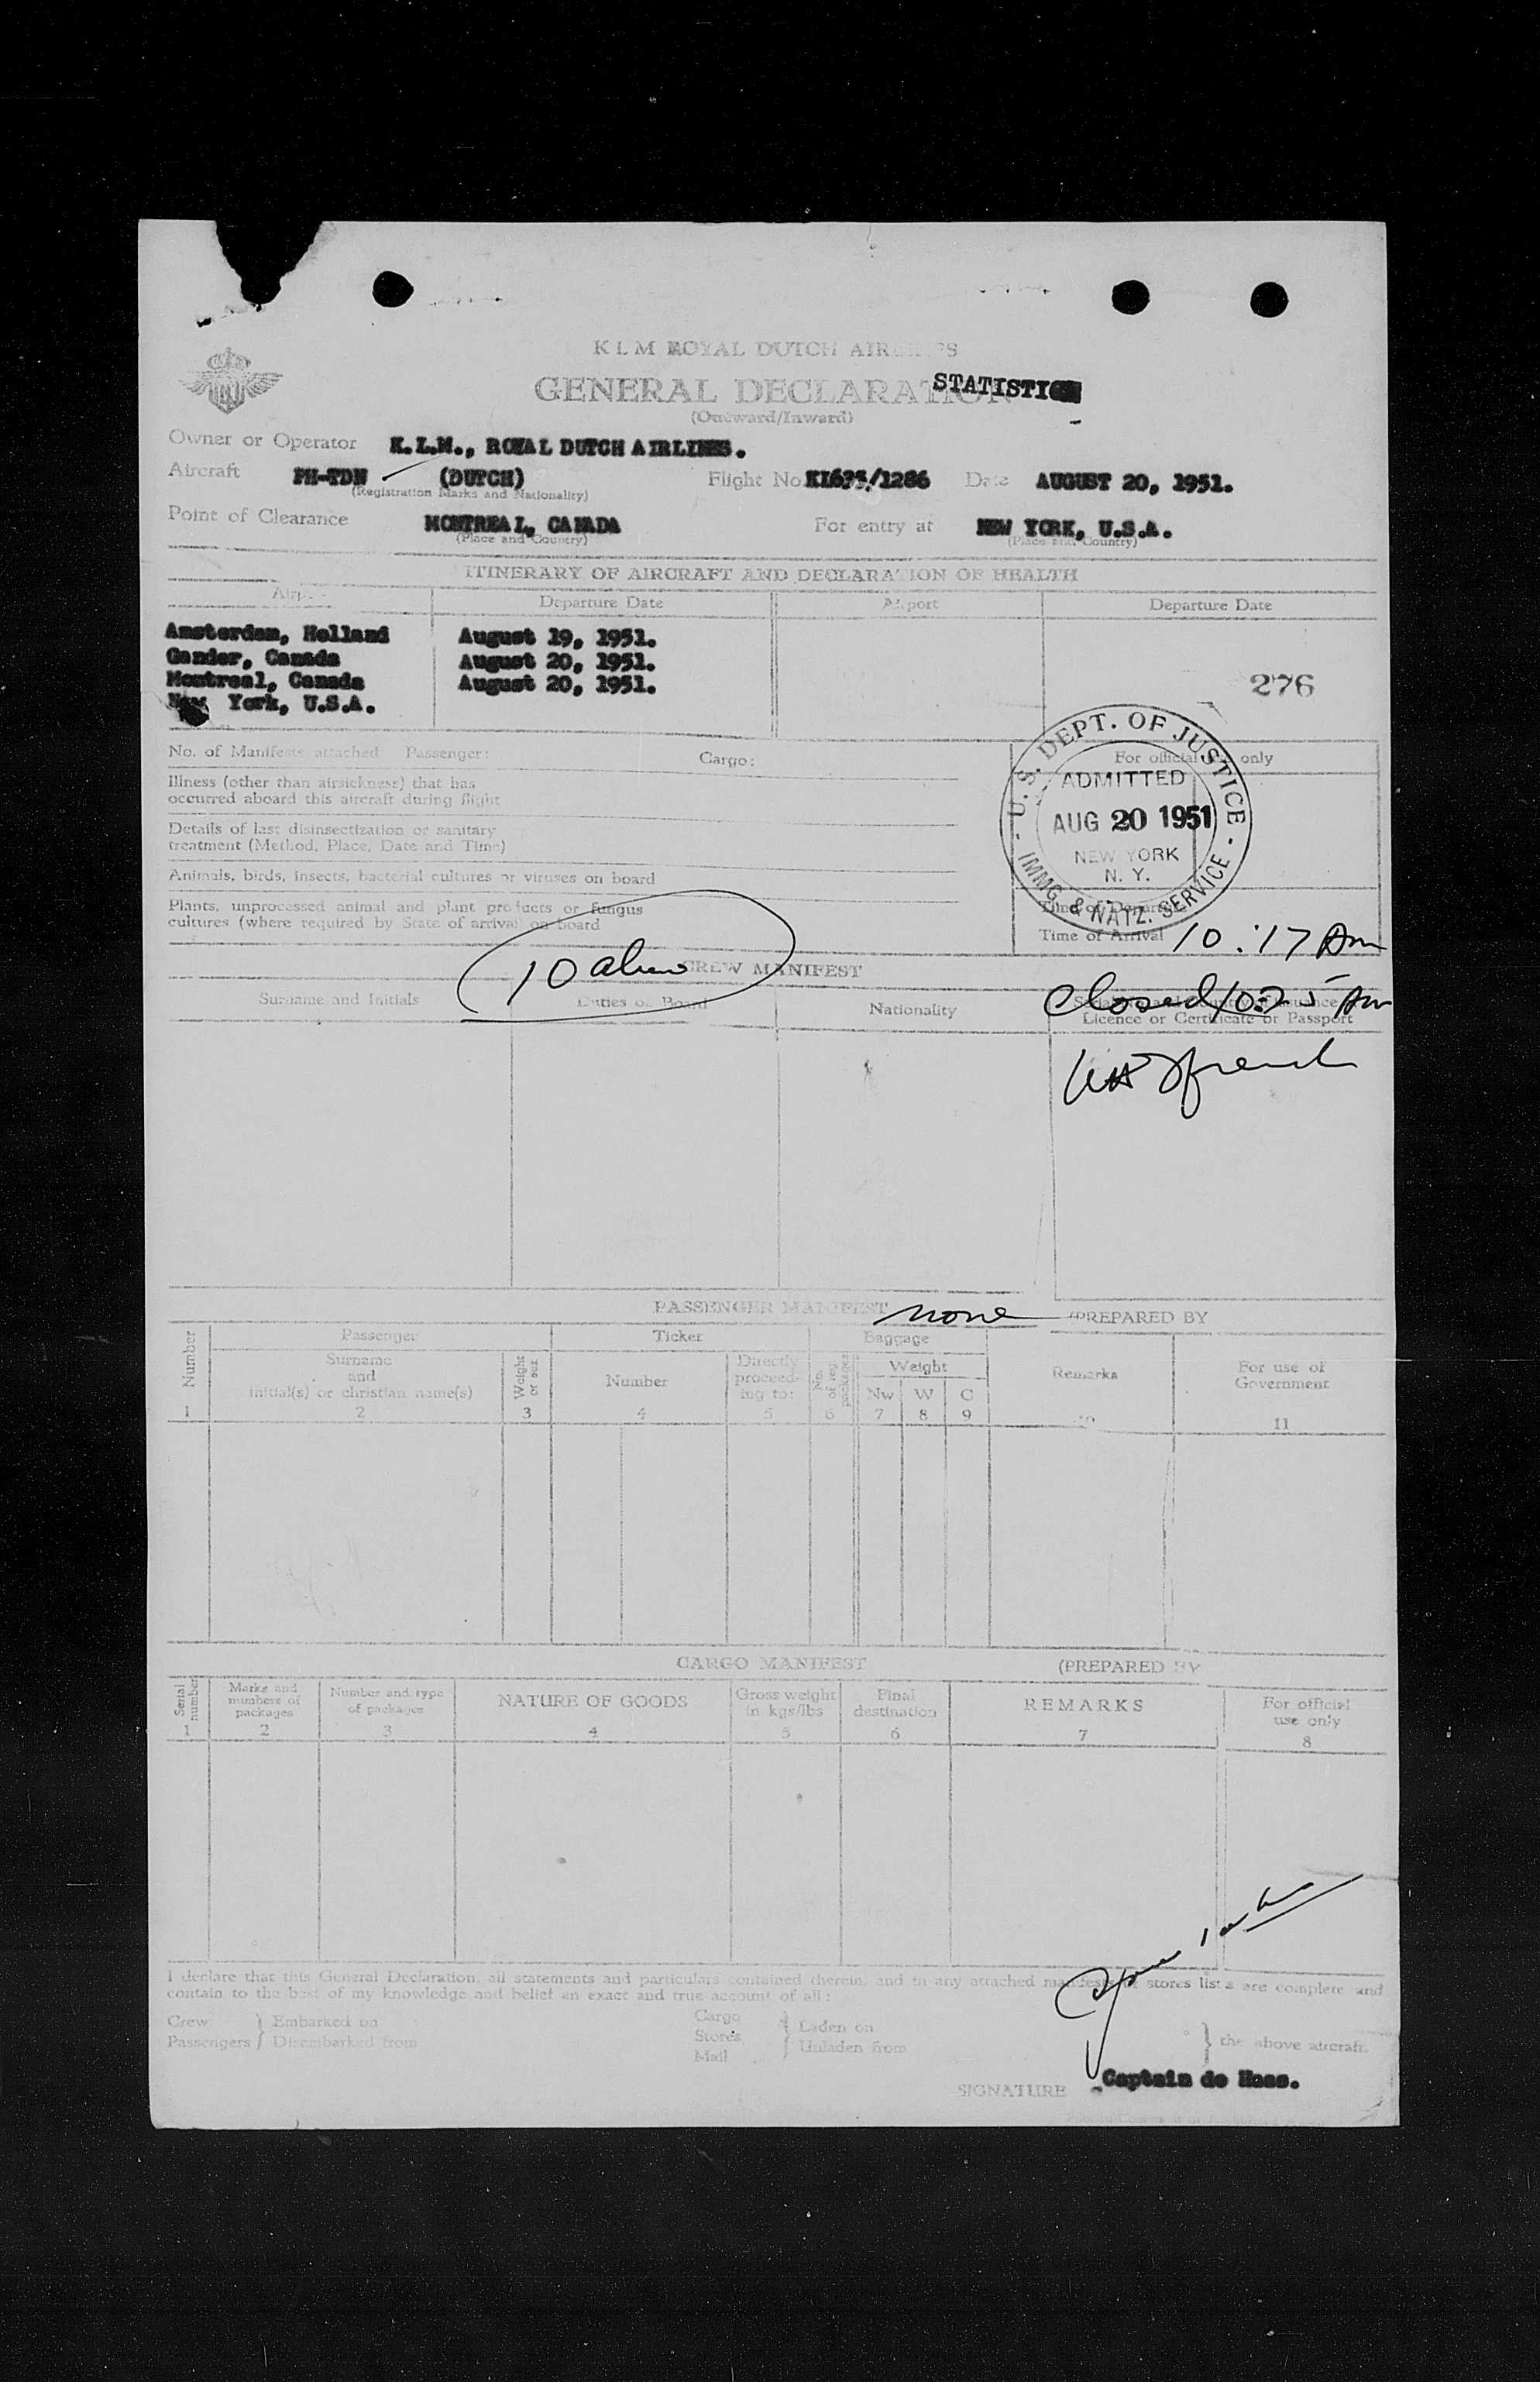 KLM ROYAL DUTCH AIRLINES
GENERAL DECLARATION
STATISTICS
(Outward/Inward)
Owner or Operator K.L.M., ROYAL DUTCH AIRLINES.
Aircraft PH-TDN (DUTCH) Flight No. Date AUGUST 20, 1951.
(Registration Marks and Nationality)
Point of Clearance MONTREAL, CANADA For entry at NEW YORK, U.S.A.
(Place and Country) (Place and Country)
ITINERARY OF AIRCRAFT AND DECLARATION OF HEALTH
Airport Departure Date Airport Departure Date
Amsterdam, Holland August 19, 1951.
Gander, Canada August 20, 1951.
Montreal, Canada August 20, 1951.
New York, U.S.A.
276
No. of Manifests attached Passenger: Cargo: For official use only
Illness (other than airsickness) that has
occurred aboard this aircraft during flight
Details of last disinsectization or sanitary
treatment (Method, Place, Date and Time)
Animals, birds, insects, bacterial cultures or viruses on board
Plants, unprocessed animal and plant products or fungus
cultures (where required by State of arrival) on board
U.S. DEPT. OF JUSTICE
ADMITTED
AUG 20 1951
NEW YORK
N. Y.
IMMG. & NATZ. SERVICE
Time of Departure
Time of Arrival 10:17 Am
10
CREW MANIFEST
Closed 10:25 Am
Surname and Initials Duties on Board Nationality
Licence or Certificate or Passport
PASSENGER MANIFEST none (PREPARED BY
Number Passenger Ticket Baggage Remarks For use of
Government
Surname
and
initial(s) or christian name(s)
Weight or sex
Number
Directly
proceed-
ing to:
No. of reg. packages
Weight
Nw W C
1 2 3 4 5 6 7 8 9 10 11
CARGO MANIFEST (PREPARED BY
Serial number
Marks and
numbers of
packages
Number and type
of packages
NATURE OF GOODS
Gross weight
in kgs/lbs
Final
destination
REMARKS
For official
use only
1 2 3 4 5 6 7 8
I declare that this General Declaration, all statements and particulars contained therein, and in any attached manifests stores lists are complete and
contain to the best of my knowledge and belief an exact and true account of all:
Crew } Embarked on Cargo
Passengers } Disembarked from Stores } Laden on } the above aircraft.
Mail } Unladen from
SIGNATURE Captain de Haas.